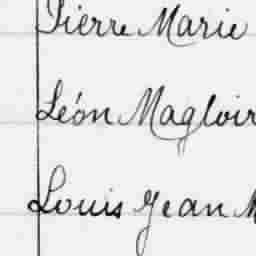 Pierre Marie
Léon Magloir
Louis Jean M